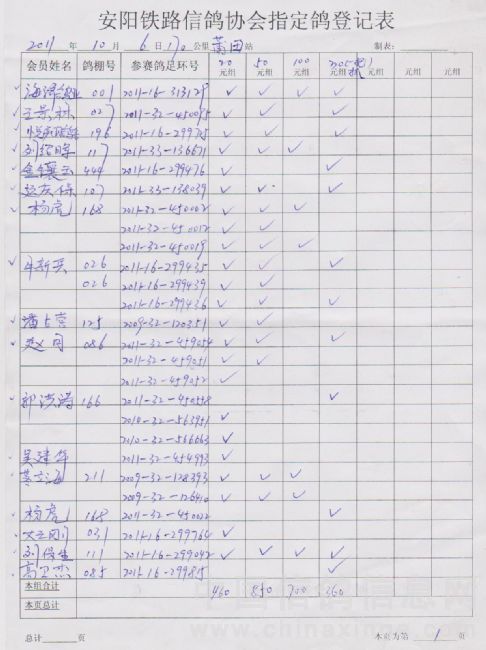 安阳铁路信鸽协会指定鸽登记表
2011 年 10 月 6 日 170 公里 莆田 站 制表:
会员姓名 鸽棚号 参赛鸽足环号 20元组 50元组 100元组 元组 元组 元组
001 2011-16-313129 ✓ ✓ ✓ ✓
王景林 027 2011-32-450095 ✓ ✓ ✓
196 2011-16-299725 ✓ ✓ ✓
刘绍晖 117 2011-33-136671 ✓ ✓ ✓
444 2011-16-299476 ✓ ✓
赵庆保 107 2011-33-138039 ✓ ✓
杨虎 168 2011-32-450002 ✓ ✓ ✓
2011-32-450012 ✓ ✓
2011-32-450019 ✓ ✓ ✓
牛新买 026 2011-16-299435 ✓ ✓ ✓
026 2011-16-299439 ✓ ✓
2011-16-299436 ✓ ✓ ✓
潘占营 125 2009-32-120351 ✓ ✓
赵同 086 2011-32-459054 ✓ ✓ ✓
2011-32-459051 ✓ ✓
2011-32-459052 ✓
郭洪涛 166 2011-32-450558 ✓
2010-32-563951 ✓
2010-32-566663 ✓
吴建华 2011-32-454993 ✓
211 2009-32-128393 ✓ ✓ ✓
2009-32-126410 ✓ ✓ ✓
杨虎 168 2011-32-450022 ✓
031 2011-16-299764 ✓
刘保生 111 2011-16-299042 ✓ ✓ ✓ ✓
高卫杰 085 2011-16-299815 ✓
本组合计 460 850 700 260
本页总计
总计 页 本页为第 1 页
中国信鸽信息网
www.chinaxinge.com